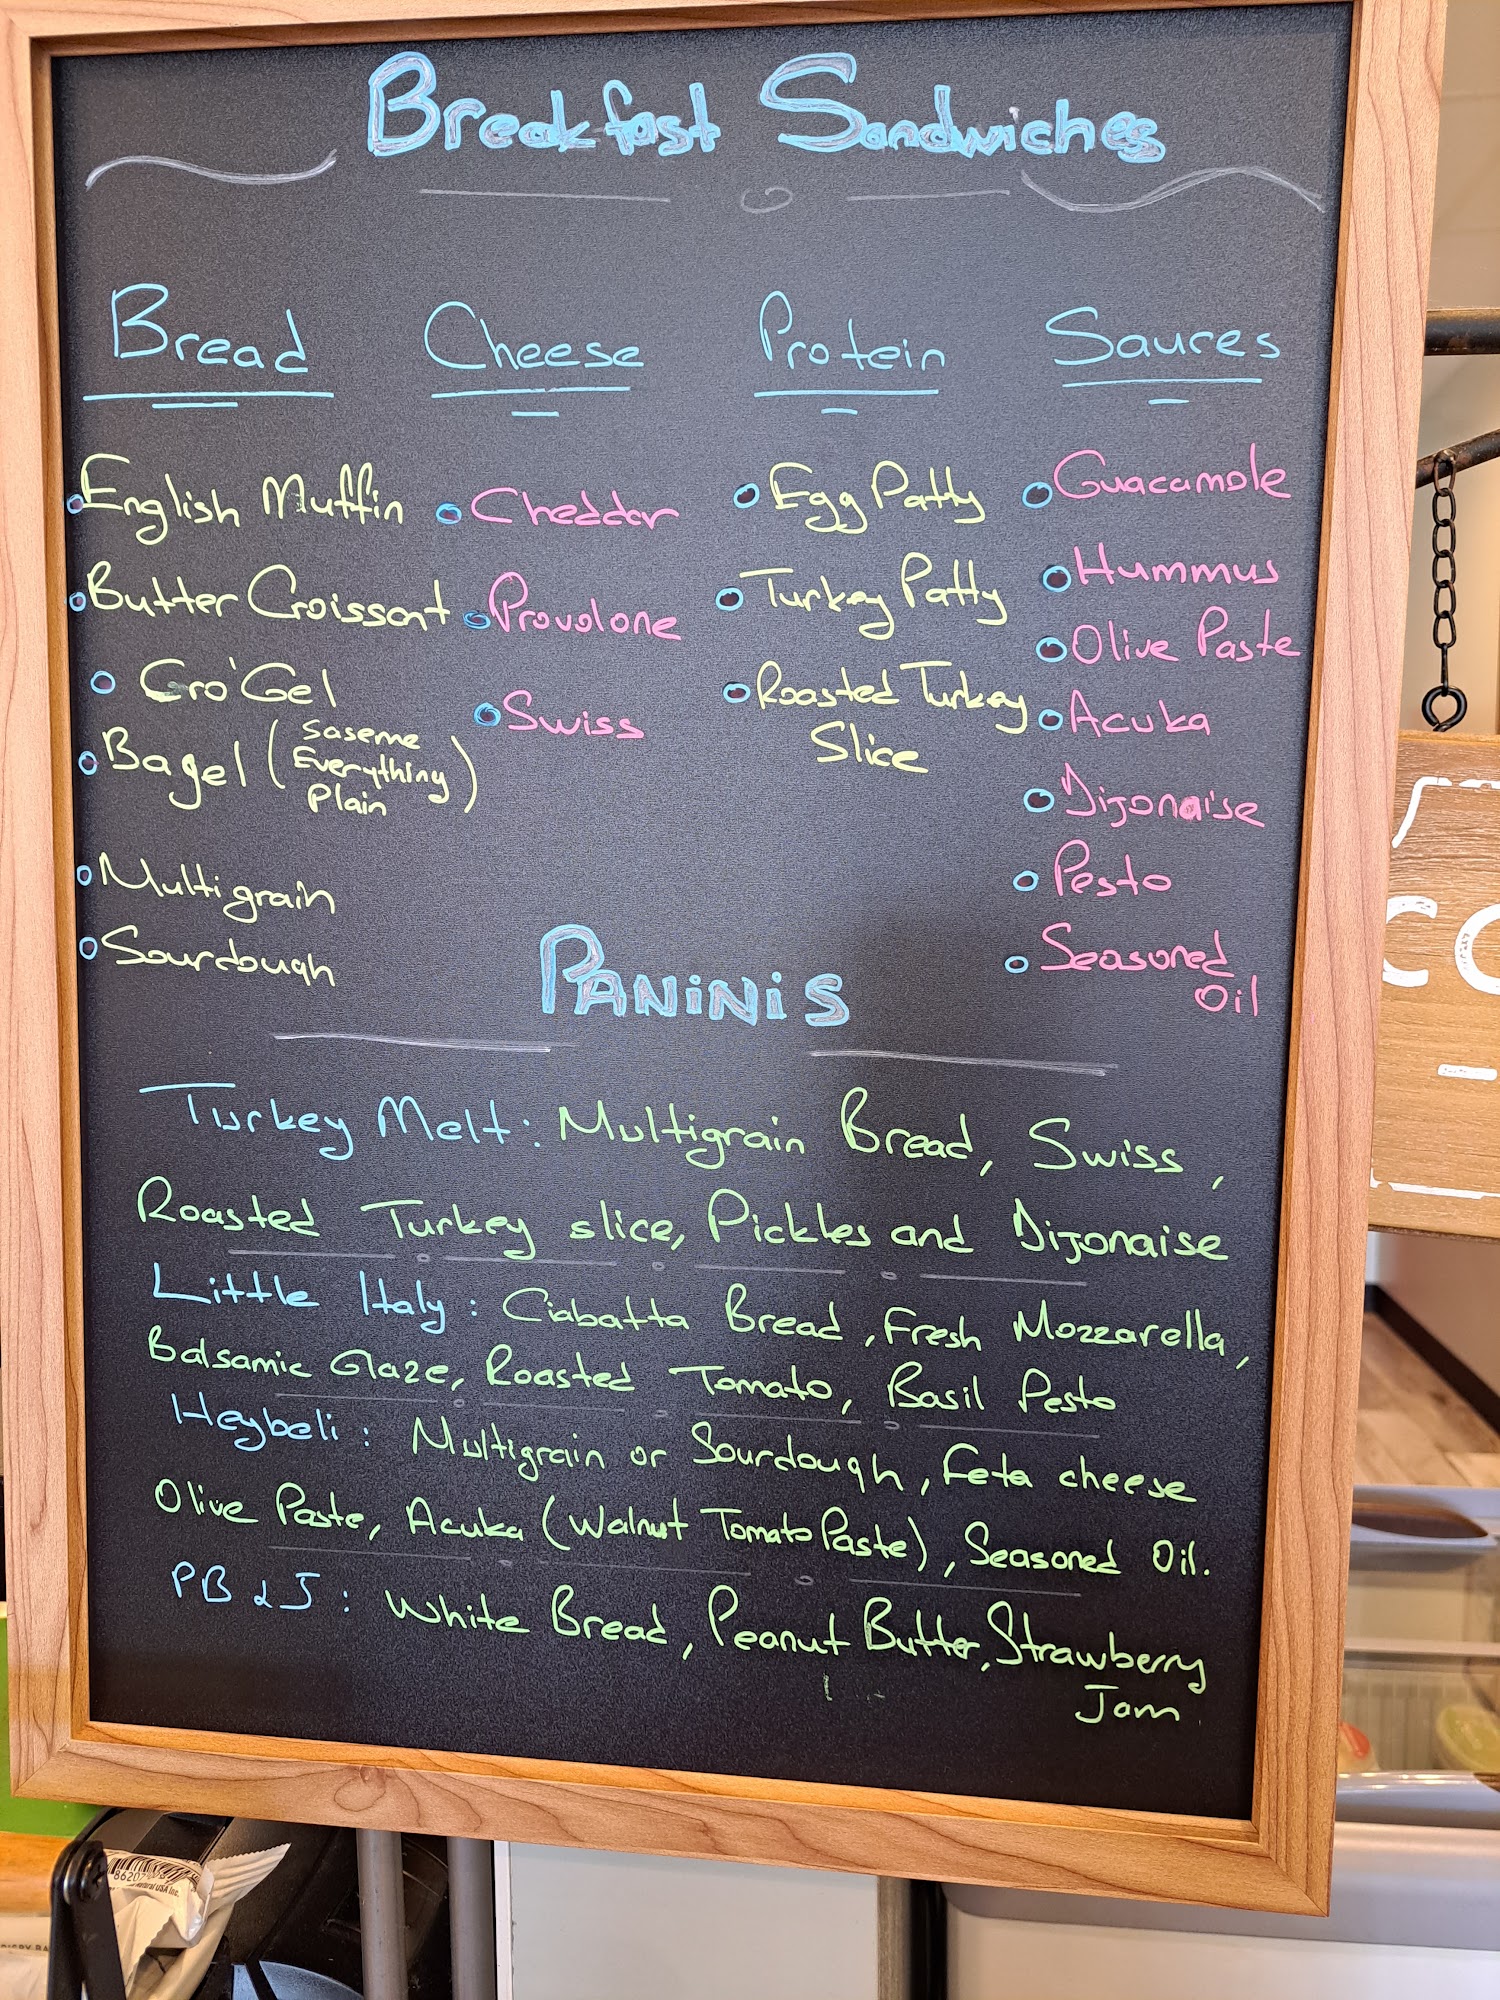 Breakfast Sandwiches
Bread
English Muffin
Butter Croissant
Cro'Gel
Bagel (Saseme Everything Plain)
Multigrain
Sourdough
Cheese
Cheddar
Provolone
Swiss
Protein
Egg Patty
Turkey Patty
Roasted Turkey
Slice
Saures
Guacamole
Hummus
Olive Paste
Acuka
Dijonaise
Pesto
Seasoned
Oil
PANiNiS
Turkey Melt: Multigrain Bread, Swiss,
Roasted Turkey slice, Pickles and Dijonaise
Little Italy: Ciabatta Bread, Fresh Mozzarella,
Balsamic Glaze, Roasted Tomato, Basil Pesto
Heybeli: Multigrain or Sourdough, Feta cheese
Olive Paste, Acuka (Walnut Tomato Paste), Seasoned Oil.
PB & J: White Bread, Peanut Butter, Strawberry
Jam
CO